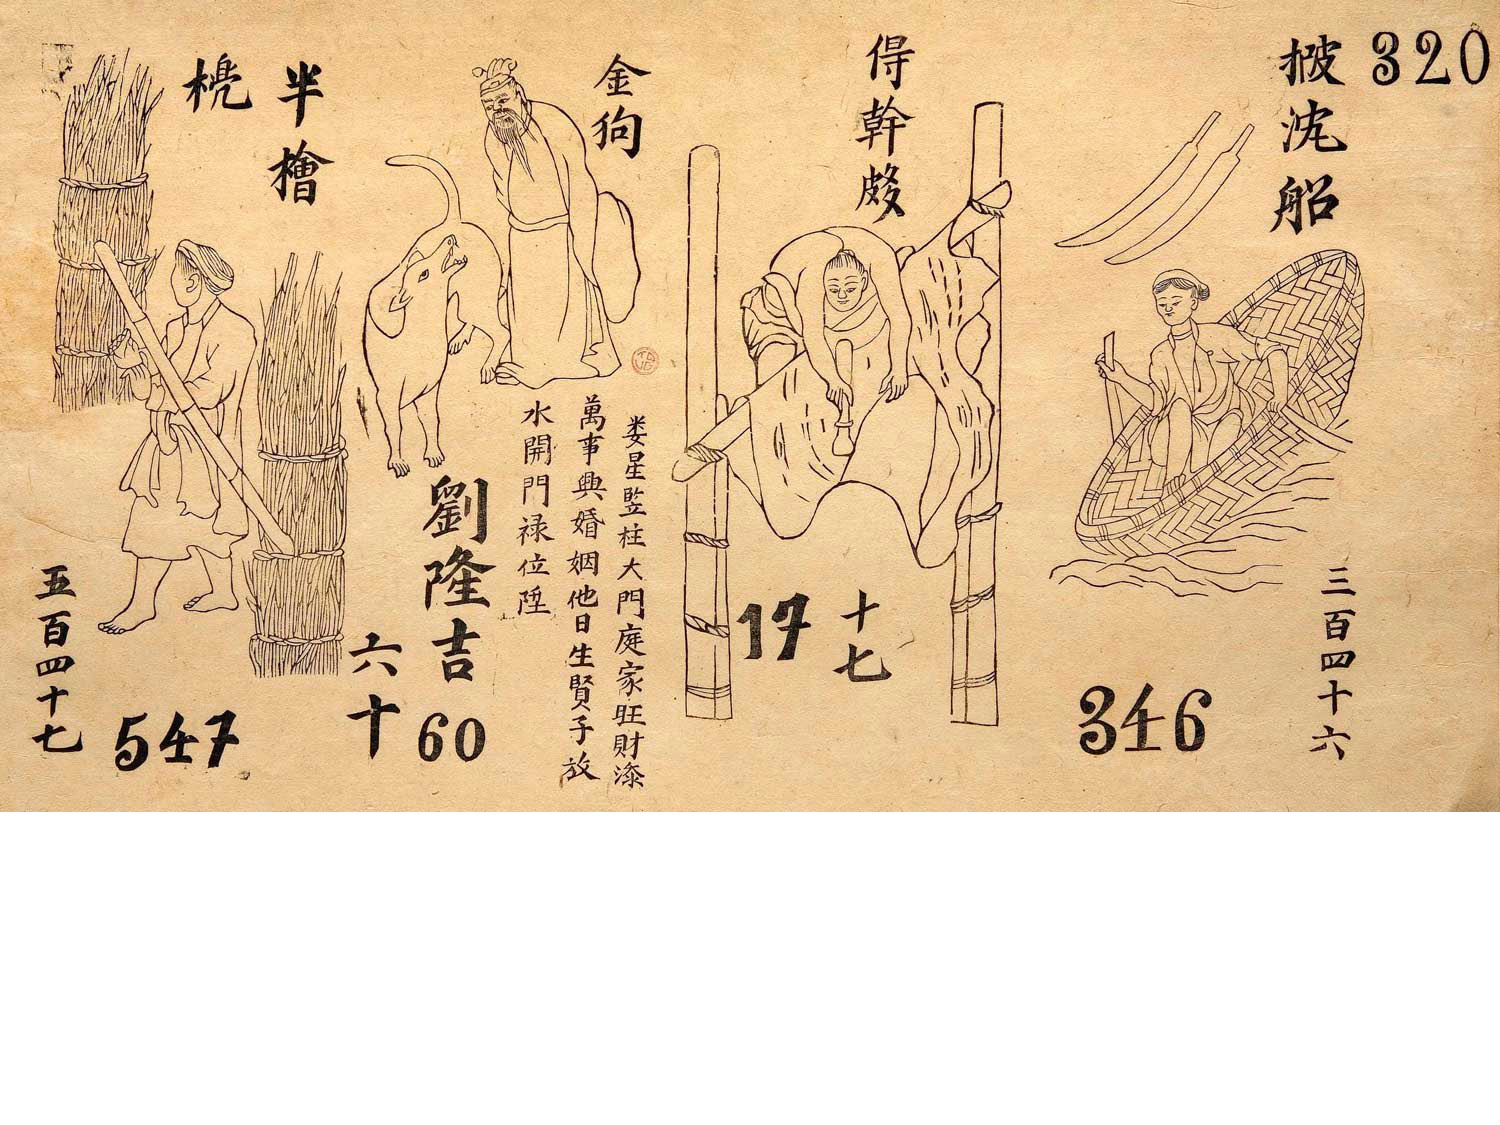 320
披沈船
三百四十六
346
得幹𤿦
十七
17
金狗
娄星竪柱大門庭家旺財添
萬事興婚姻他日生賢子放
水開門禄位陞
劉隆吉
六十
60
半檜
五百四十七
547